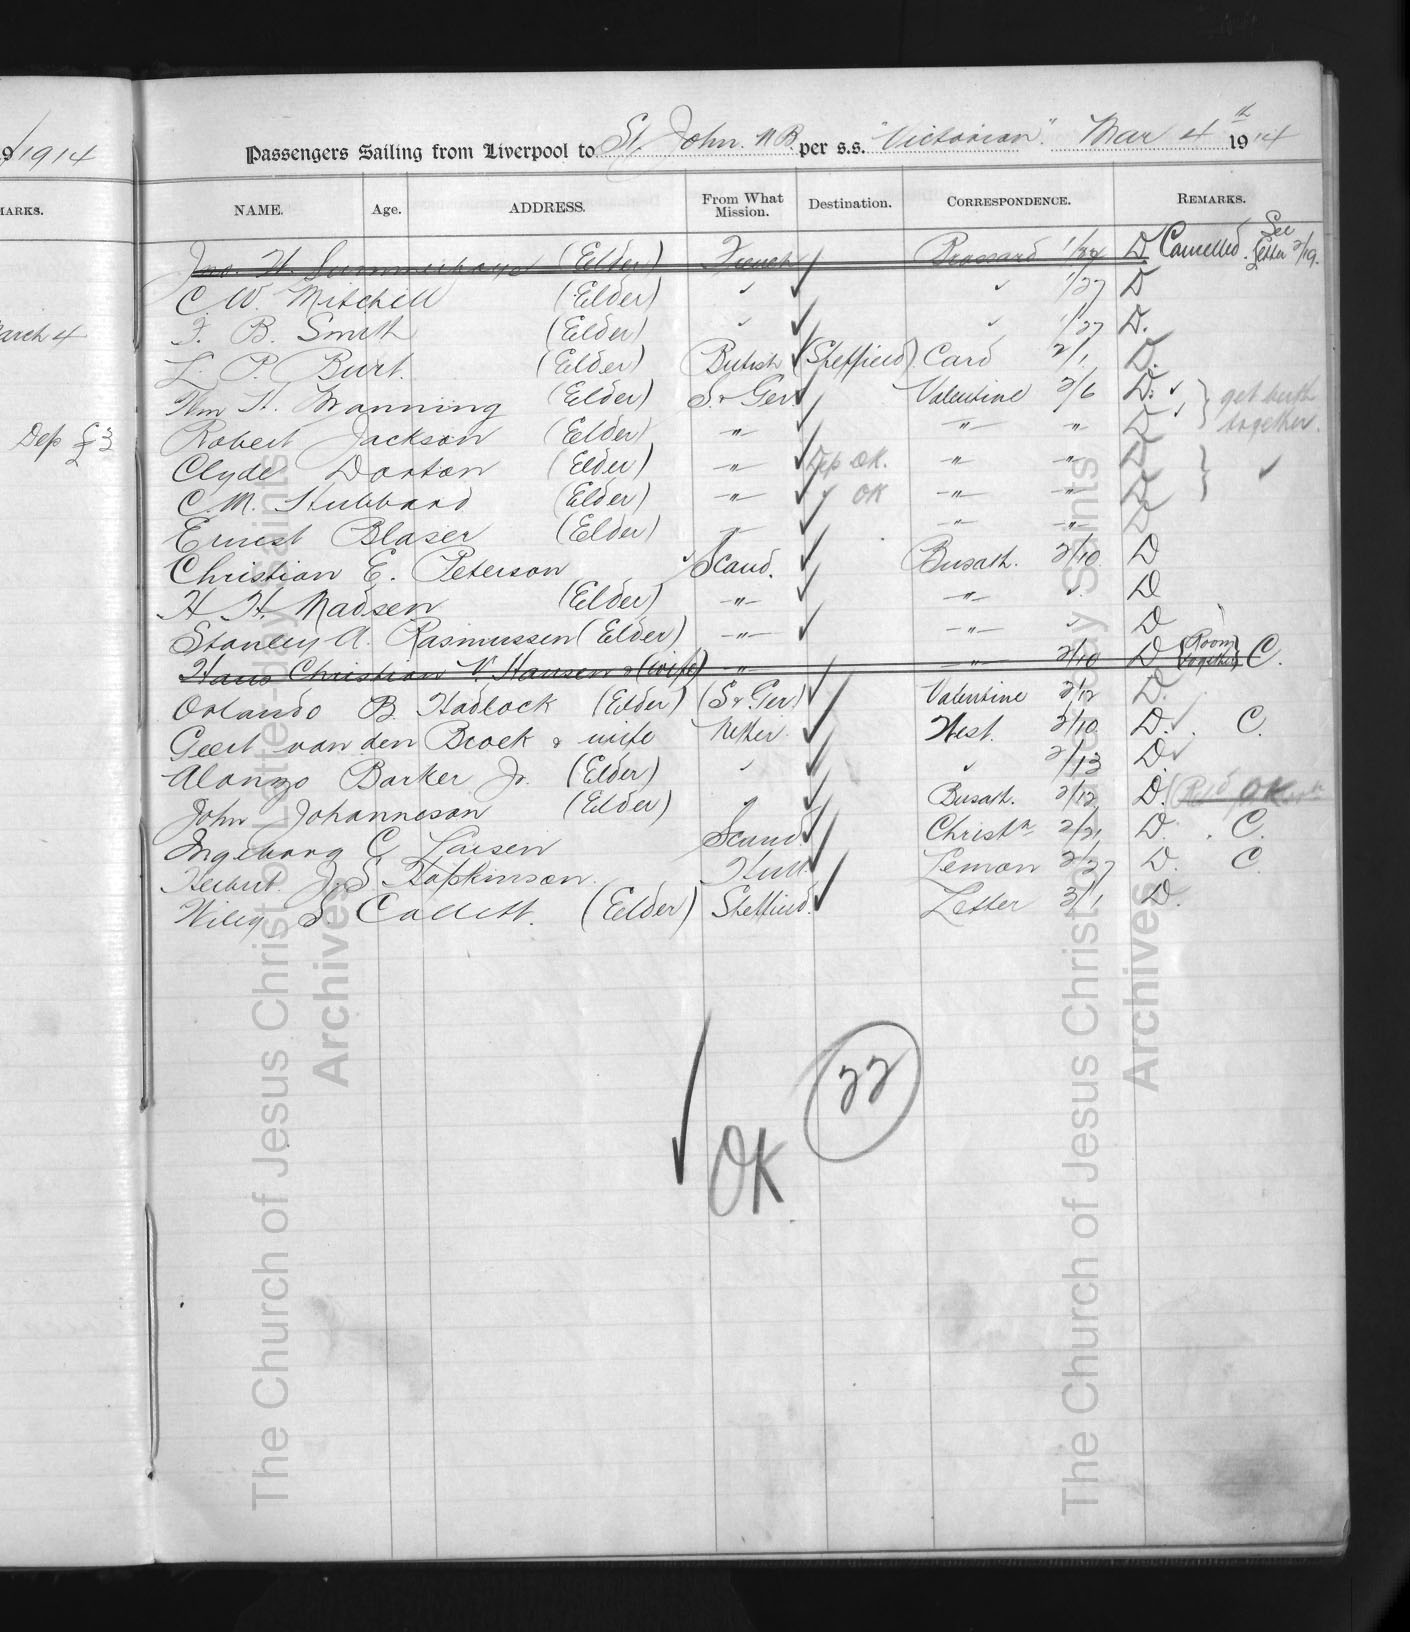 1914
Passengers Sailing from Liverpool to St. John. N B. per s.s. "Victorian". Mar 4th 1914
MARKS.
NAME. Age. ADDRESS. From What Mission. Destination. CORRESPONDENCE. REMARKS.
Jno. H. (Elder) French ✓ Brossard 1/24 D Cancelled. See Letter 2/19.
C. W. Mitchell (Elder) " ✓ " 1/27 D
F. B. Smith (Elder) " ✓ " 1/27 D.
March 4
L. P. Burt. (Elder) British ✓ (Sheffield) Card 2/1 D.
Wm H. Manning (Elder) S. & Ger ✓ Valentine 2/6 D. ✓ } get berth
Dep £3
Robert Jackson (Elder) -"- ✓ -"- " D ✓ } together.
Clyde Dorton (Elder) -"- ✓ Dep OK. -"- -"- D } ✓
C. M. Hubbard (Elder) -"- ✓ " OK -"- -"- D }
Ernest Blaser (Elder) -"- ✓ -"- -"- D
Christian E. Peterson Scand. ✓ Busath. 2/10 D
H. H. Madsen (Elder) -"- ✓ -"- " D
Stanley A. Rasmussen (Elder) -"- ✓ -"- " D
Hans Christian V. Hansen & (wife) -"- -"- 2/10 D {Room together} C.
Orlando B. Hadlock (Elder) (S & Ger) ✓ Valentine 2/12 D.
Geert van den Broek & wife Nether. ✓ West. 2/10 D. ✓ C.
Alonzo Barker Jr. (Elder) " ✓ " 2/13 D ✓
John Johanneson (Elder) " ✓ Busath. 2/12 D. OK
Ingeborg C. Larsen Scand. ✓ Christa 2/21 D. C.
Herbert Hopkinson. Hull ✓ Lemon 2/27 D. C
S. Collett. (Elder) Sheffield. ✓ Letter 3/1 D.
22
✓ OK
The Church of Jesus Christ of Latter-day Saints
Archives
The Church of Jesus Christ of Latter-day Saints
Archives